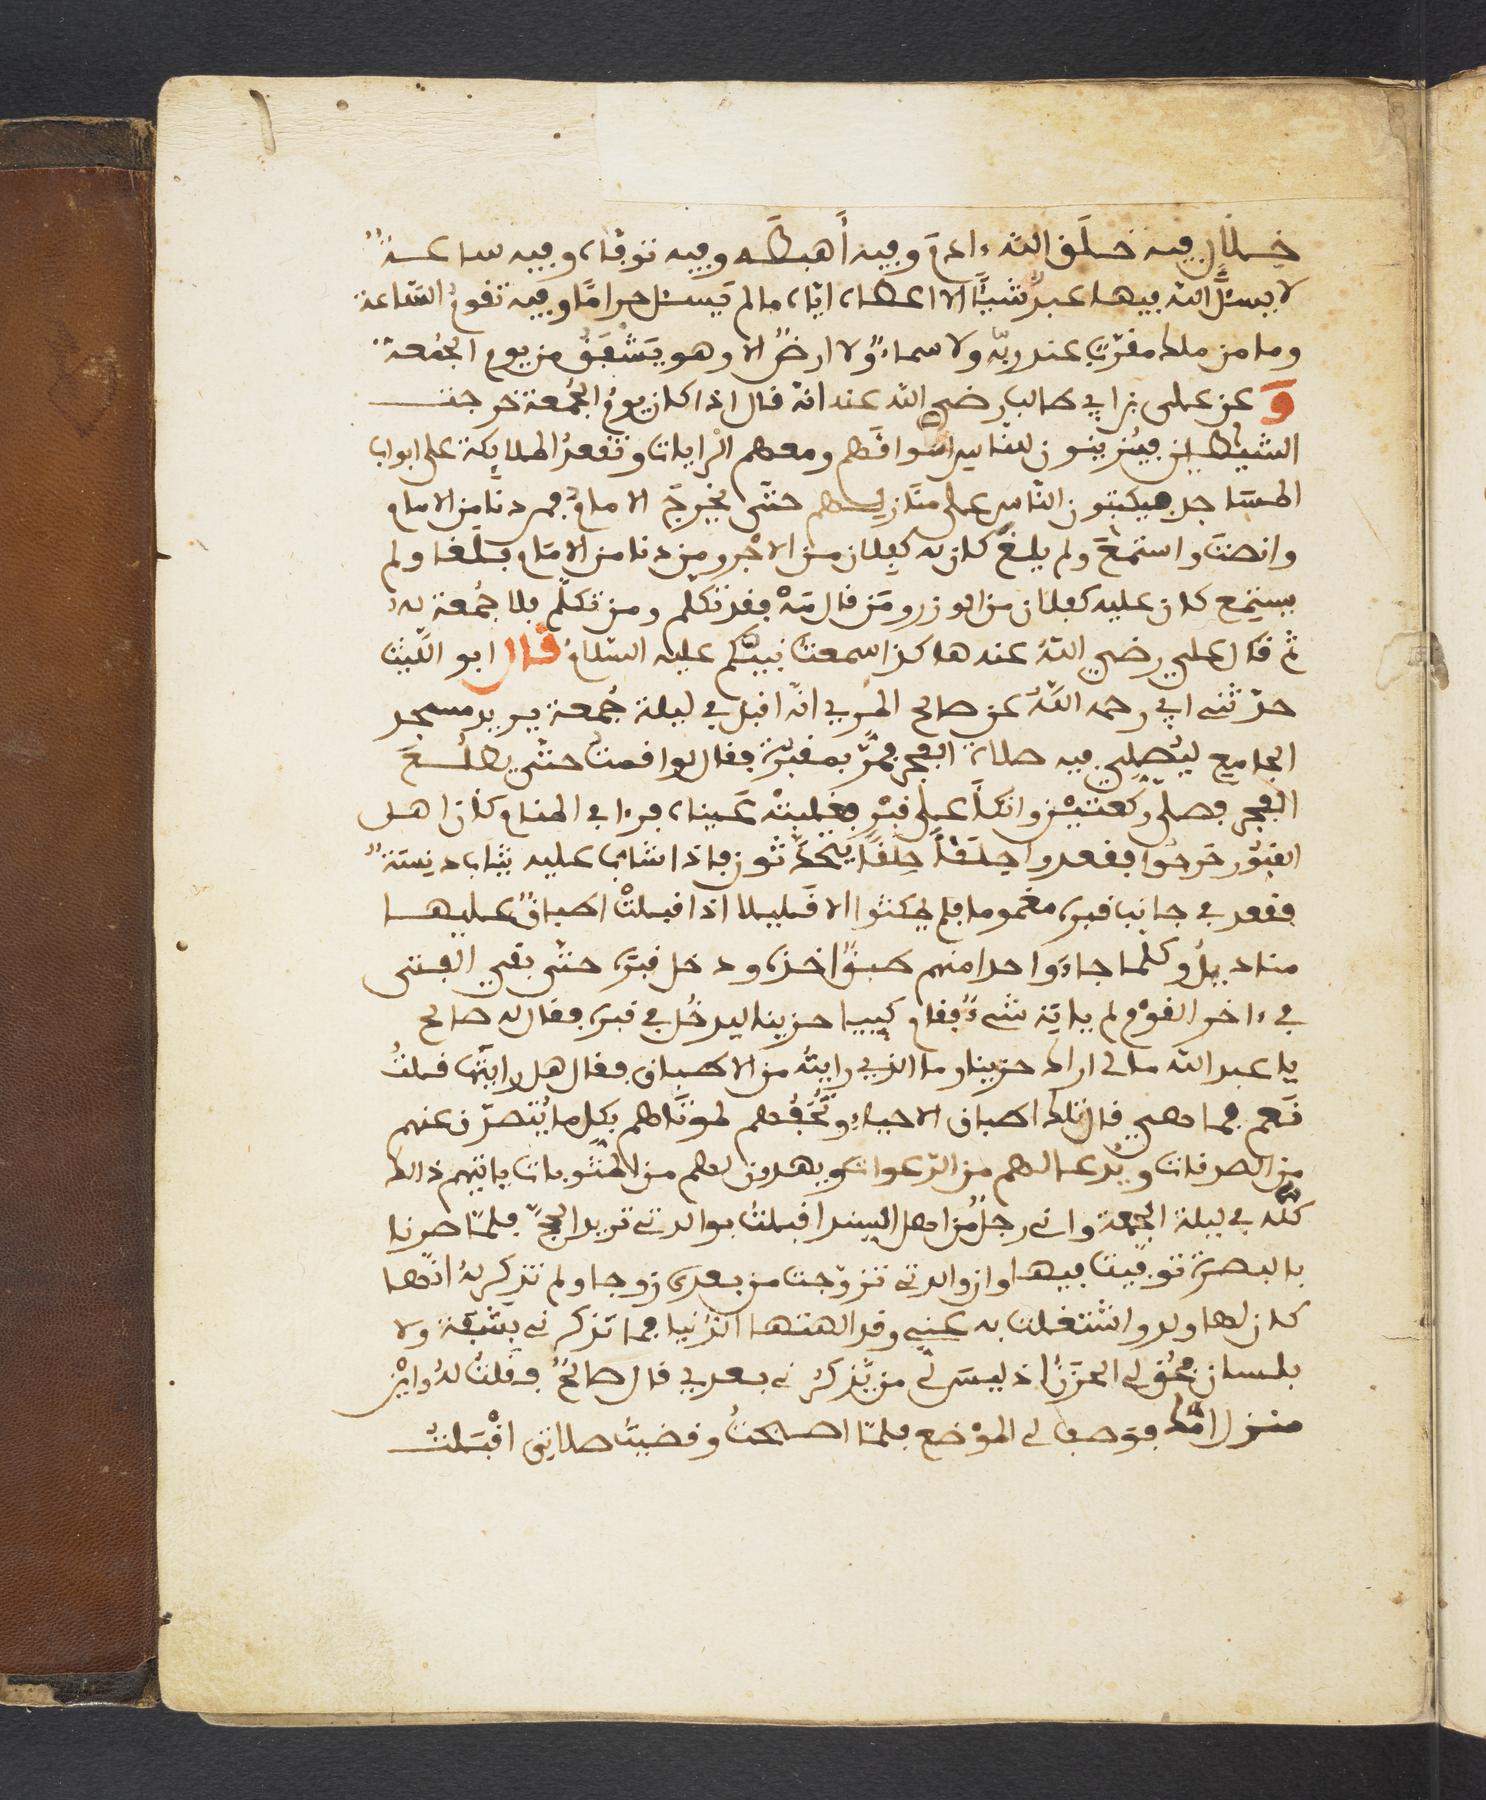 خلال فيه خلق الله ءادم وفيه أهبطه وفيه توفاه وفيه ساعة
لا يسئل الله فيها عبد شيئا الا اعطاه اياه ما لم يسئل حراما وفيه تقوم الساعة
وما من ملك مقرّب عند ربّه ولا سماء ولا ارض الا وهو يشفق من يوم الجُمعة
وَعن علي بن ابي طالب رضي الله عنه انه قال اذا كان يومُ الجُمعة خرجت
الشيطين فيزينون للناس اسواقهم ومعهم الرايات وتقعدُ الملايكة على ابواب
المساجد فيكتبون الناس على منازلهم حتّى يخرجَ الامام فمن دنا من الامام
وانصت واستمعَ ولم يلغ كان له كفلان من الاجر ومن دنا من الامام فلغا ولم
يستمع كان عليه كفلان من الوزر ومَن قال مَهْ فقد تكلّم ومن تكلّم فلا جُمعة له
ثم قال علي رضي اللهُ عنه هاكذا سمعتُ نبيّكم عليه السّلامُ قال ابو اللّيث
حدّثني ابي رحمه اللهُ عن صالح المري انّه اقبل في ليلة جُمعة يريد مسجد
الجامع ليُصلي فيه صلاة الفجر فمرّ بمقبرة فقال لو اقمت حتّى يطلعَ
الفجر فصلّى ركعتيْن واتكأ على قبْر فغلبتْه عيناه فرءا في المنام كأن اهل
القبُور خرجُوا فقعدوا حِلَقًا حِلَقًا يتحدّثون فاذا شاب عليه ثياب دنِسَة
فقعد في جانب قبره مغموما فلم يمكثوا الا قليلا اذ اقبلتْ اطباق عليها
مناديلُ وكلّما جاء واحدا منهم طبقٌ اخذه ودخل قبره حتّى بقي الفتى
في ءاخر القوم لم ياته شيءٌ فقام كييبا حزينا ليدخُل في قبره فقال له صالح
يا عبد الله مالي اراك حزينا وما الذي رايتُه من الاطباق فقال هل رايتَها قلتُ
نَعم فما هي قال تلك اطباق الاحياء وتُحَفُهم لموتَاهم بكل ما يتصدّق عنهم
من الصدقات ويُدعا لهم من الدّعوات ويهدون لهم من المثوبات ياتيهم ذالك
كلّه في ليلة الجُمعة واني رجُل من اهل السند اقبلتُ بوالدتي تريد الحجّ فلمّا صرنا
بالبصرة توفيت فيها وان والدتي تزوّجت من بعدى زوجا ولم تذكر لهُ انّها
كان لها ولد واشتغلت به عنّي وقد الهتها الدّنيا فما تذكرني بشفة ولا
بلسان فحُق لي الحزَنُ اذ ليسَ لي من يّذكرُني بعدي قال صالحٌ فقلتُ لهُ واين
منزل امّك فوصف لي الموْضع فلمّا اصبحتُ وقضيتُ صلاتي اقْبَلتُ